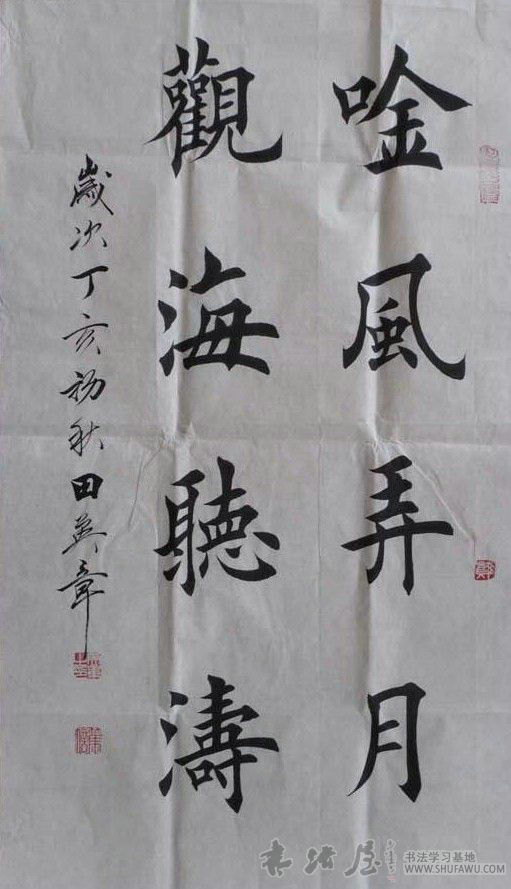 唫風弄月
觀海聽濤
歲次丁亥初秋田英章
书法学习基地
WWW.SHUFAWU.COM